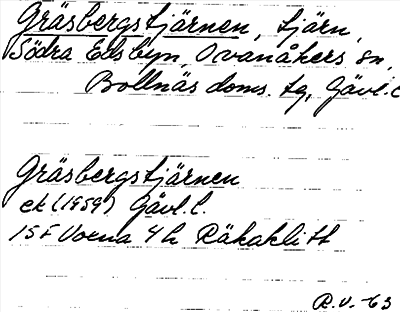 Gräsbergstjärnen, tjärn,
Södra Edsbyn, Ovanåkers sn,
Bollnäs doms. tg, Gävl. l
Gräsbergstjärnen
ek (1959) Gävl. l.
15F Voxna 4h Räkaklitt
R.V. -63